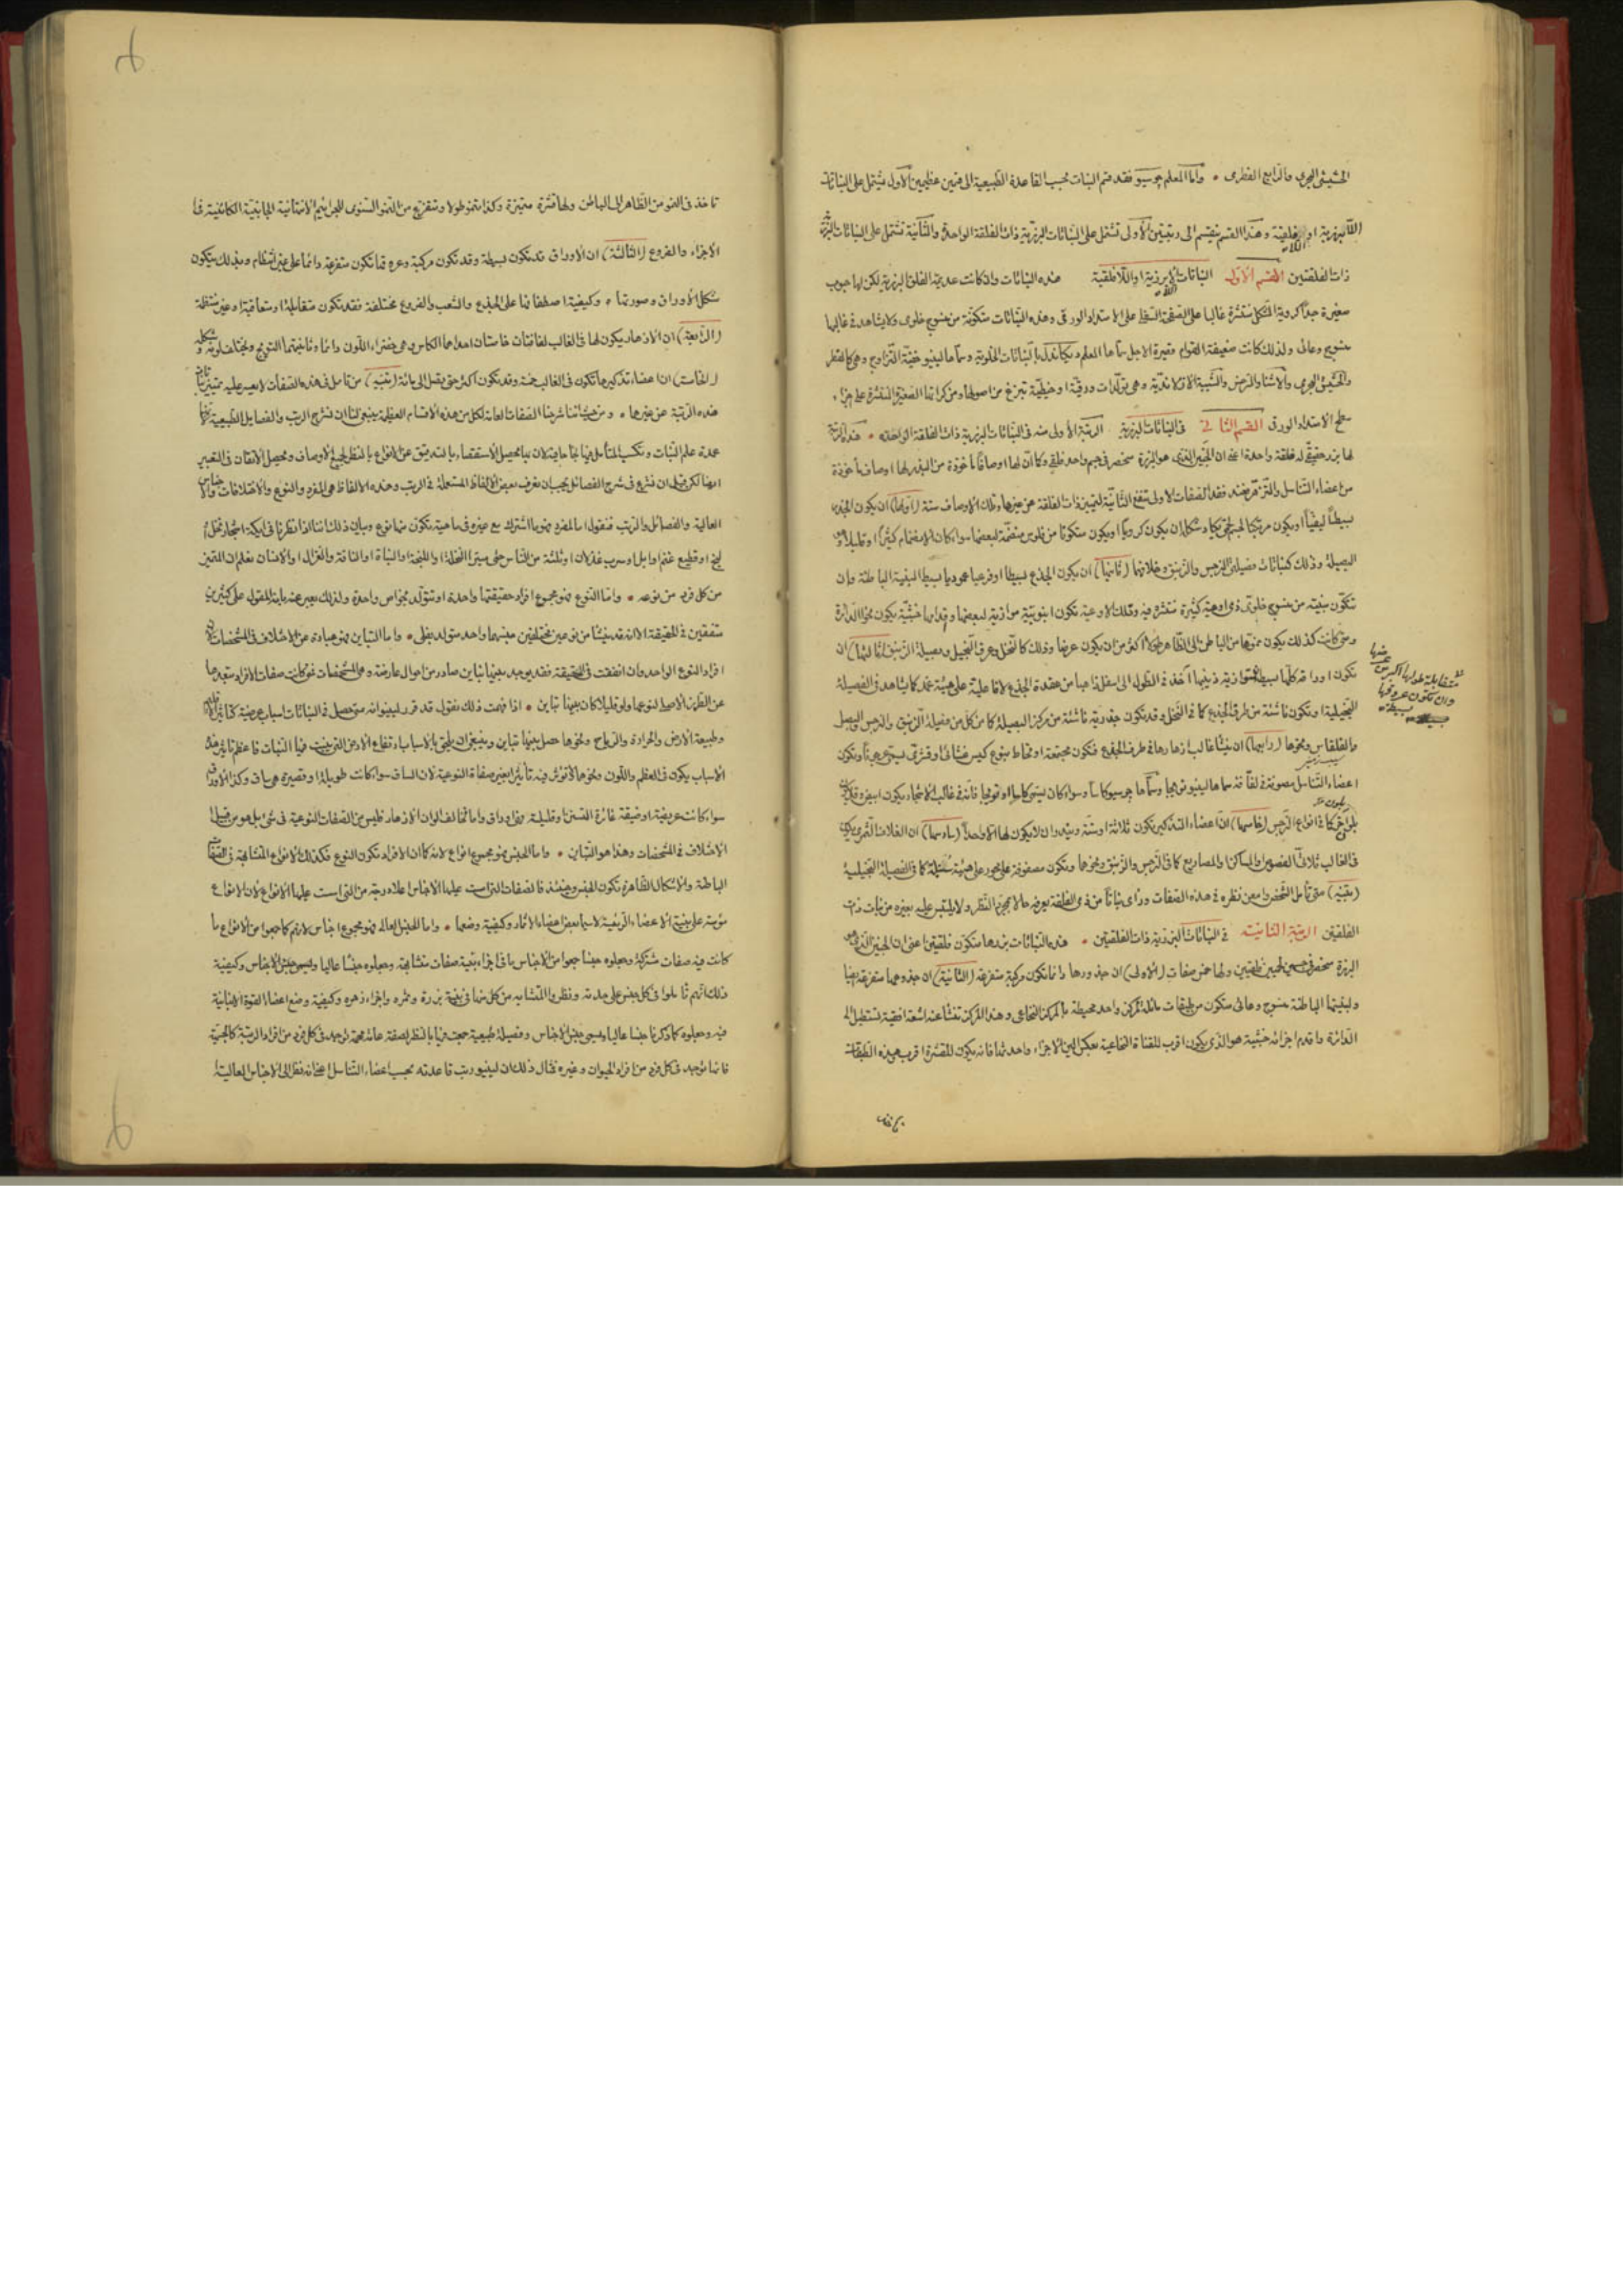 الحشيشى البحرى والرابع الفطرى • واما المعلم جوسيو فقد قسم النبات بحسب القاعدة الطبيعية الى قسمين عظيمين الاول يشتمل على النباتات
اللابزرية او اللافلقية وهذا القسم ينقسم الى رتبتين الاولى تشتمل على النباتات البزرية ذات الفلقة الواحدة والثانية تشتمل على النباتات البزرية
ذات الفلقتين القسم الاول النباتات اللابزرية او اللافلقية هذه النباتات وان كانت عديمة الفلق البزرية لكن لها حبوب
صغيرة جدا كروية الشكل منتثرة غالبا على الصفحة السفلى على الامتداد الورقى وهذه النباتات متكونة من منسوج خلوى ولا يشاهد فى غالبها
منسوج وعائى ولذلك كانت ضعيفة القوام قصيرة الاجل سماها المعلم بالنباتات الخلوية وسماها لينيو خفية التزاوج وهى كالفطر
والحشيش البحرى والاشنا والسرخس وهى تولدات ورقية او خيطية تبزغ من اصولها ومن كراتها الصغيرة المنتثرة على اجزاء
سطح الامتداد الورقى القسم الثانى فى النباتات البزرية الرتبة الاولى منه فى النباتات البزرية ذات الفلقة الواحدة • هذه الرتبة
لها بزر حقيقى له فلقة واحدة اعنى ان الجنين الذى هو البزرة منحصر فى جسم واحد فلقى وكما ان لها اوصافا مأخوذة من البذر لها اوصاف مأخوذة
من اعضاء التناسل والتزهر فعند فقد الصفات الاولى تنفع الثانية لتمييز ذات الفلقة عن غيرها وتلك الاوصاف ستة (اولها) ان يكون الجذر
بسيطا ليفيا او يكون مركبا وشكله ان يكون كرويا او يكون متكونا من فلوس منضمة لبعضها سواء كان الانضمام كثيرا او قليلا وهى
البصيلة وذلك كنباتات فصيلتى النرجس والزنبق وخلافهما (ثانيها) ان يكون الجذع بسيطا او فرعيا عموديا بسيط البنية الباطنة وان
تتكون بنيته من منسوج خلوى ذى اوعية كثيرة منتثرة فيه وتلك الاوعية تكون انبوبية موازية لبعضها واقدامها خشبية يكون نحو الدائرة
ومتى كانت كذلك يكون نموها من الباطن الى الظاهر طولا اكثر من ان يكون عرضا وذلك كالنخل وعرق النجيل وبصيلة الزنبق (ثالثها) ان
تكون اوراقه كلها بسيطة متوازية ذنيبها آخذ فى الطول الى اسفل ذاهبا من عقدة الجذع لافا عليه على هيئة غمد كما يشاهد فى الفصيلة
النجيلية او تكون ناشئة من طرف الجذع كما فى النخل وقد تكون جذرية ناشئة من مركز البصيلة كما من كل من فصيلة الزنبق والنرجس والبصل
والقلقاس ونحوها (رابعها) ان ينشأ غالب ازهارها فى طرف الجذع فتكون مجتمعة او تحاط بنوع كيس غشائى او قشرى يسمى جرابا وتكون
اعضاء التناسل مصونة فى لفافة سماها لينيو تويجا وسماها جوسيو كاسا وسواء كان يسمى كاسا او تويجا فانه فى غالب الاشجار يكون ابيض وقد يكون
بلون آخر كما فى انواع النرجس (خامسها) ان اعضاء التذكير تكون ثلاثة او ستة ويندر ان لا يكون لها الا واحدا (سادسها) ان الغلاف الثمرى يكون
فى الغالب ثلاثى الفصوص والمساكن والمصاريع كما فى النرجس والزنبق ونحوها وتكون مصفوفة على محور على هيئة سنبلة كما فى الفصيلة النجيلية
(تنبيه) متى تامل الشخص وامعن نظره فى هذه الصفات ورأى نباتا من ذى الفلقة يعرفه حالا بمجرد النظر ولا يلتبس عليه بغيره من نبات ذات
الفلقتين الرتبة الثانية فى النباتات البزرية ذات الفلقتين • هذه النباتات بزرها متكون فلقتين اعنى ان الجنين الذى هو
البزرة منحصر فى جسمين لحميين فلقيين ولها خمس صفات (الاولى) ان جذورها دائما تكون مركبة متفرعة (الثانية) ان جذوعها متفرعة ايضا
ولبنيتها الباطنة منسوج وعائى متكون من طبقات مائلة لمركز واحد محيطة بالمركز النخاعى وهذا المركز تنشأ عنه اشعة افقية تستطيل الى
الدائرة واقدم اجزائه خشبية هو الذى يكون اقرب للقناة النخاعية بعكس الين الاجزاء واحدثها فانه يكون للقشرة اقرب هذه الطبقات
متقابلة طولها اكبر من عرضها
وان تكون عروقها
بسيطة
تاخذ فى النمو من الظاهر الى الباطن ولها قشرة متميزة وكذا تنمو طولا وتتفرع من النمو السنوى للجراثيم الانتهائية الجانبية الكائنة فى
الاجزاء والفروع (الثالثة) ان الاوراق قد تكون بسيطة وقد تكون مركبة وعروقها تكون متفرعة دائما على غير انتظام وبذلك يتكون
شكل الاوراق وصورتها • وكيفية اصطفافها على الجذع والشعب والفروع مختلفة فقد تكون متقابلة او متعاقبة او غير منتظمة
(الرابعة) ان الازهار يكون لها فى الغالب لفافتان احداهما الكاس وهى خضراء اللون دائما وثانيتهما التويج ويختلف لونه وشكله
(الخامسة) ان اعضاء تذكيرها تكون فى الغالب خمسة وقد تكون اكثر حتى تصل الى مائة (تنبيه) من تامل فى هذه الصفات لا يعسر عليه تمييز نباتات
هذه الرتبة عن غيرها • ومن حيث اننا شرحنا الصفات العامة لكل من هذه الاقسام العظيمة ينبغى لنا ان نشرح الرتب والفصايل الطبيعية لانها
عمدة علم النبات وتكسب المتأمل فيها نجاحا فيه لان بها يحصل الاستقصاء بالتدقيق عن الانواع بالنظر لجميع الاوصاف ويحصل الاتقان فى التعبير
ايضا لكن قبل ان نشرع فى شرح الفصائل يجب ان نعرف بعض الالفاظ المستعملة فى الرتب وهذه الالفاظ هى المفرد والنوع والاختلافات والاجناس
العالية والفصائل والرتب فنقول اما المفرد فهو ما اشترك مع غيره فى ماهية تكون منها نوع وبيان ذلك اننا اذا نظرنا فى ايكة اشجار نخل او
او قطيع غنم او ابل او سرب غزلان او ثلة من الناس حتى ميزنا النخلة او النعجة او الشاة او الناقة والغزال او الانسان نعلم ان المتميز
من كل فرد من نوعه • واما النوع فهو مجموع افراد حقيقتها واحدة او تتولد بخواص واحدة ولذلك يعبر عنه بانه المقول على كثيرين
متفقين فى الحقيقة الا انه قد ينشأ من نوعين مختلفين جنسهما واحد متولد بغلى • واما التباين فهو عبارة عن الاختلاف فى المشخصات لان
افراد النوع الواحد وان اتفقت فى الحقيقة فقد يوجد بعضها تباين صادر من احوال عارضة وهى المشخصات فمتى كانت صفات الافراد متبعدة
عن الطرز الاصلى لنوعها ولو قليلا كان بعضها تباين • اذا فهمت ذلك نقول قد قرر لينيو انه متى حصل فى النباتات اسباب عرضية كتأثير الاقليم
وطبيعة الارض والحرارة والرياح ونحوها حصل بينها تباين وينبغى ان يلحق بالاسباب ارتفاع الارض التى ينبت فيها النبات فاعظم تأثير هذه
الاسباب يكون فى العظم واللون ونحوها لا تؤثر فيه تأثيرا يغير صفاته النوعية لان الساق سواء كانت طويلة او قصيرة هى ساق وكذا الاوراق
سواء كانت عريضة او ضيقة غائرة التسنن او قليلته فهى اوراق واما اختلاف الوان الازهار فليس من الصفات النوعية فى شئ بل هو من قبيل
الاختلاف فى المشخصات وهذا هو التباين • واما الجنس فهو مجموع انواع لانه كما ان الافراد تكون النوع فكذلك الانواع المتشابهة فى الصفات
الباطنة والاشكال الظاهرة تكون الجنس وحينئذ فالصفات التى اسست عليها الاجناس اعلا درجة من التى اسست عليها الانواع لان الانواع
مؤسسة على بنية الاعضاء الرئيسية لاسيما بعض اعضاء الاثمار وكيفية وضعها • واما الجنس العالى فهو مجموع اجناس لانهم كما جمعوا من الانواع ما
كانت فيه صفات مشتركة وجعلوه جنسا جمعوا من الاجناس ما فى اجزاء بقية صفات متشابهة وجعلوه جنسا عاليا ويسمى جنس الاجناس وكيفية
ذلك انهم تأملوا فى كل جنس على حدته ونظروا المتشابه من كل منها فى بنية بزره وثمره واجزاء زهره وكيفية وضع اعضاء القوة الانباتية
فيه وجعلوه كما ذكرنا جنسا عاليا ويسمى جنس الاجناس وفصيلة طبيعية جمعت فيها بالنظر لصفة عامة مهمة توجد فى كل فرد من افراد الرتبة كالجنسية
فانها توجد فى كل فرد من افراد الحيوان وغيره مثال ذلك ان لينيو رتب قاعدته بحسب اعضاء التناسل اعنى انه نظر الى الاجناس العالية